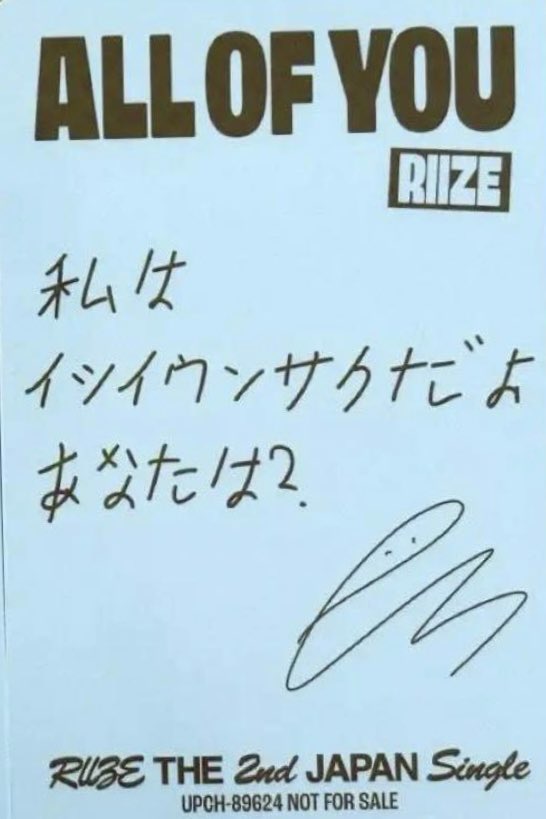 ALL OF YOU
RIIZE
私は
イシイウンサクだよ
あなたは?
RIIZE THE 2nd JAPAN Single
UPCH-89624 NOT FOR SALE